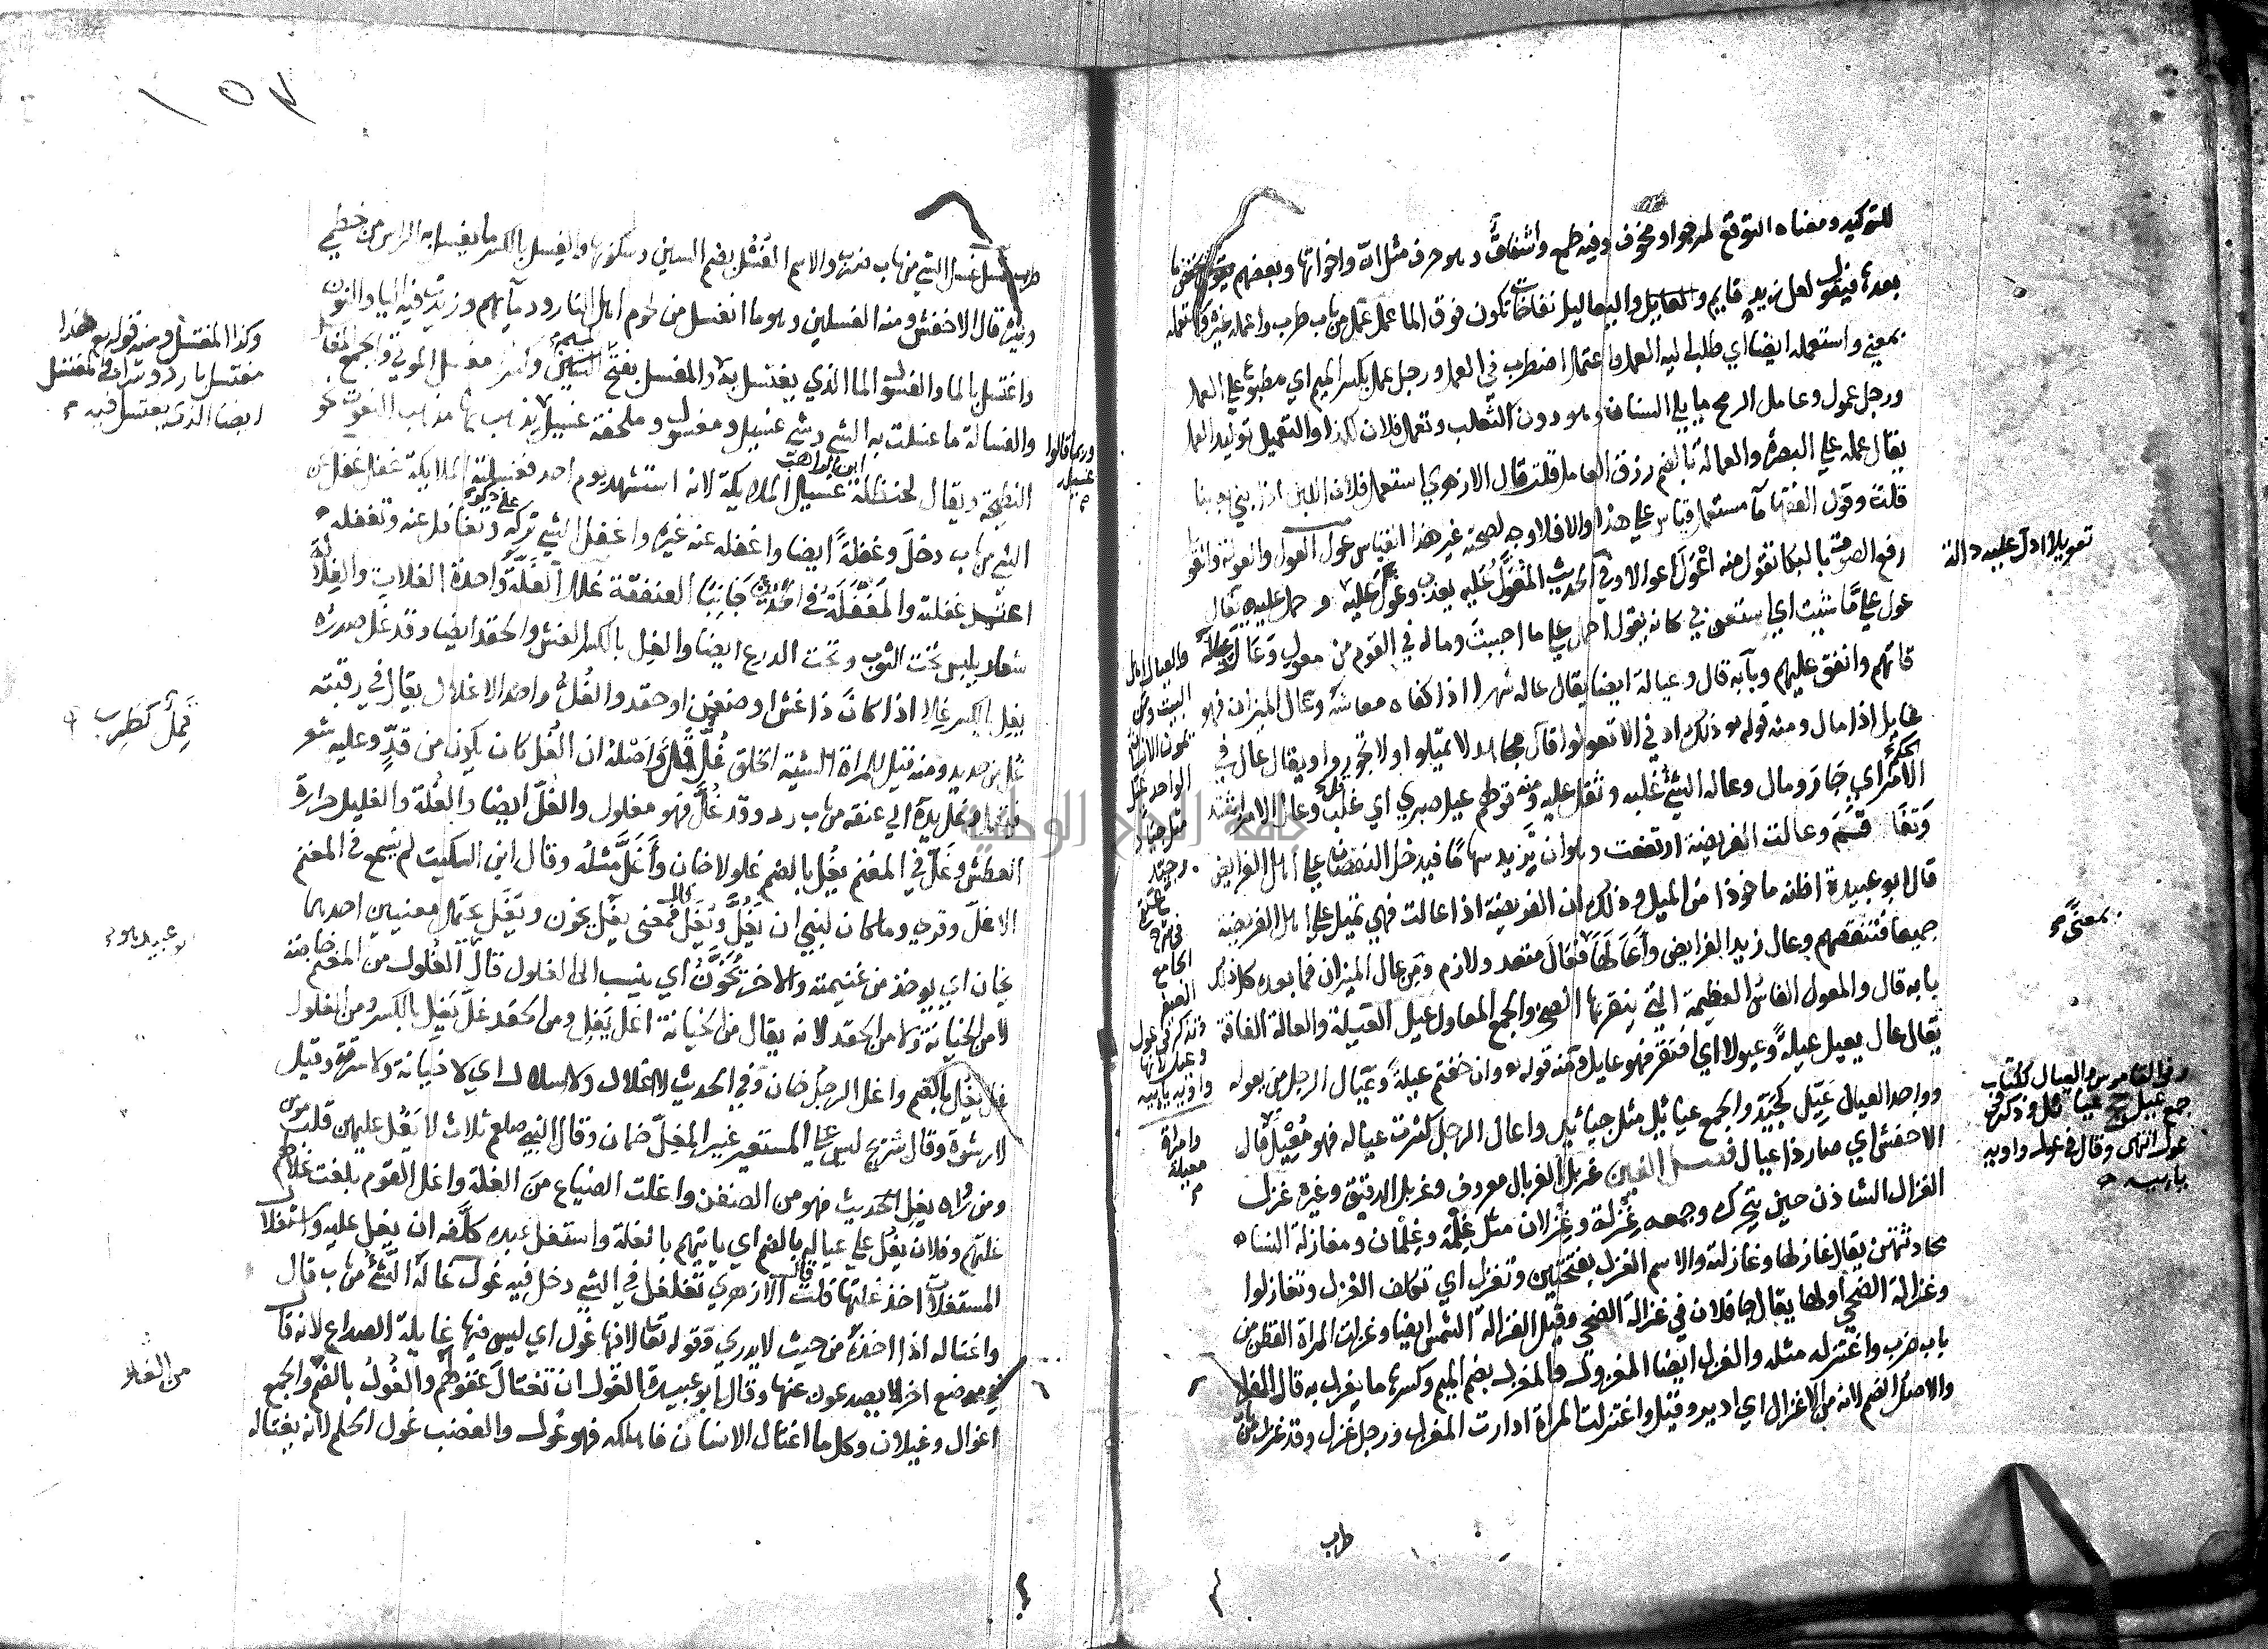 للتوكيد ومعناه التوقع لمرجو او مخوف وفيه طمع واشفاق وهو حرف مثل ان واخواتها وبعضهم يخفض ما
بعدها فيقول لعل زيد قايم واليعاليل نفاخات تكون فوق الما عمل عمل من باب طرب واعمله غيره واستعمله
بمعني واستعمله ايضا اي طلب اليه العمل واعتمل اضطرب في العمل ورجل عمل بكسر الميم اي مطبوع علي العمل
ورجل عمول وعامل الرمح ما يلي السنان وهو دون الثعلب وتعمل فلان لكذا والتعميل تولية العمل
يقال عمله علي البصرة والعمالة بالضم رزق العامل قلت قال الازهري استعمل فلان اللبن اذا بني به بنا
قلت وقول الفقها ما مستعمل قياس علي هذا والا فلا وجه لصحته غير هذا القياس عول العول والعولة والعويل
رفع الصوت بالبكا تقول منه اعول اعوالا وفي الحديث المعول عليه يعذب وعول عليه وحمل عليه يقال
عول علي ما شئت اي استعن بي كانه يقول احمل علي ما احببت وما له في القوم من معول وعال عياله
قاتهم وانفق عليهم وبابه قال وعيالة ايضا يقال عاله شهرا اذا كفاه معاشه وعال الميزان فهو
عايل اذا مال ومنه قوله تع ذلك ادني الا تعولوا قال مجاهد لا تميلوا ولا تجوروا ويقال عال في
الحكم اي جار ومال وعاله الشيء غلبه وثقل عليه ومنه قولهم عيل صبري اي غلب وعال الامر اشتد
وتفاقم وعالت الفريضة ارتفعت وهو ان تزيد سهاما فيدخل النقصان علي اهل الفرايض
قال ابو عبيدة اظنه ماخوذا من الميل وذلك ان الفريضة اذا عالت فهي تميل علي اهل الفريضة
جميعا فتنقصهم وعال زيد الفرايض واعالها فعال متعد ولازم ومن عال الميزان فما بعده كل ذلك
بابه قال والمعول الفاس العظيمة التي ينقر بها الصخر والجمع المعاول عيل العيلة والعالة الفاقة
يقال عال يعيل عيلة وعيولا اي افتقر فهو عايل ومنه قوله تع وان خفتم عيلة وعيال الرجل من يعوله
وواحد العيال عيل كجيد والجمع عيائل مثل جيائد واعال الرجل كثرت عياله فهو معيل قال
الاخفش اي صار ذا عيال فصل الغين غربل الغربال معروف وغربل الدقيق وغيره غزل
الغزال الشادن حين يتحرك وجمعه غزلة وغزلان مثل غلمة وغلمان ومغازلة النساء
محادثتهن يقال غازلها وغازلته والاسم الغزل بفتحتين وتغزل اي تكلف الغزل وتغازلوا
وغزالة الضحي اولها يقال جا فلان في غزالة الضحي وقيل الغزالة الشمس ايضا وغزلت المراة القطن من
باب ضرب واغتزلته مثله والغزل ايضا المغزول والمغزل بضم الميم وكسرها ما يغزل به قال الفرا
والاصل الضم لانه من الاغزال اي ادير وفتل واغتزلت المراة ادارت المغزل ورجل غزل وقد غزل من باب
طرب
تعويلا ادل عليه دالة
والعيال اهل
البيت ومن
يمون الانسان
الواحد عيل
مثل جياد
وجيد
بمعني
وفي القاموس والعيال ككتاب
جمع عيل ج عيائل وذكر في
عول انتهي وقال في عول واويه
يائيه
وامراة
معيلة
١٥٣
طرب غسل غسل الشي من باب ضرب والاسم الغسل بضم السين وسكونها والغسل بالكسر ما يغسل به الراس من خطمي
وغيره قال الاخفش ومنه الغسلين وهو ما انغسل من لحوم اهل النار ودمايهم وزيد فيه اليا والنون
واغتسل بالما والغسول الما الذي يغتسل به والمغسل بفتح السين وكسرها مغسل الموتي والجمع المغاسل
والغسالة ما غسلت به الشي وشي غسيل ومغسول وملحفة غسيل يذهب بها مذهب النعوت نحو
النطيحة ويقال لحنظلة ابن الراهب غسيل الملايكة لانه استشهد يوم احد فغسلته الملايكة غفل غفل عن
الشي من باب دخل وغفلة ايضا واغفله عنه غيره واغفل الشي تركه علي ذكر وتغافل عنه وتغفله
اهتبل غفلته والمغفلة في الحديث جانبا العنفقة غلل الغلة واحدة الغلات والغلالة
شعار يلبس تحت الثوب وتحت الدرع ايضا والغل بالكسر الغش والحقد ايضا وقد غل صدره
يغل بالكسر غلا اذا كان ذا غش او ضغن او حقد والغل واحد الاغلال يقال في رقبته
غل من حديد ومنه قيل للمراة السيئة الخلق غل قمل واصله ان الغل كان يكون من قد وعليه شعر
فيقمل وغل يده الي عنقه من باب رد وقد غل فهو مغلول والغل ايضا والغلة والغليل حرارة
العطش وغل في المغنم يغل بالضم غلولا خان واغل مثله وقال ابن السكيت لم يسمع في المغنم
الا غل وقري وما كان لنبي ان يغل ويغل قال فمعني يغل يخون ويغل يحتمل معنيين احدهما
يخان اي يوخذ من غنيمته والاخر يخون اي ينسب الي الغلول قال الغلول من المغنم خاصة
لا من الخيانة ولا من الحقد لانه يقال من الخيانة اغل يغل ومن الحقد غل يغل بالكسر ومن الغلول
غل يغل بالضم واغل الرجل خان وفي الحديث لا اغلال ولا اسلال اي لا خيانة ولا سرقة وقيل
لا رشوة وقال شريح ليس علي المستعير غير المغل ضمان وقال النبي صلعم ثلاث لا يغل عليهن قلب مومن
ومن رواه يغل الحديث فهو من الضغن واغلت الضياع من الغلة واغل القوم بلغت غلتهم
وفلان يغل علي عياله بالضم اي ياتيهم بالغلة واستغل عبده كلفه ان يغل عليه واستغلال
المستغلات اخذ غلتها قلت قال الازهري تغلغل في الشي دخل فيه غول غاله الشيء من باب قال
واغتاله اذا اخذه من حيث لا يدري وقوله تعالي لا فيها غول اي ليس فيها غايلة الصداع لانه قال
في موضع اخر لا يصدعون عنها وقال ابو عبيدة الغول ان تغتال عقولهم والغول بالضم والجمع
اغوال وغيلان وكل ما اغتال الانسان فاهلكه فهو غول والغضب غول الحلم لانه يغتاله
وكذا المغتسل ومنه قوله تع هذا
مغتسل بارد وشراب والمغتسل
ايضا الذي يغتسل فيه
وربما قالوا
غسيلة
قمل كطرب